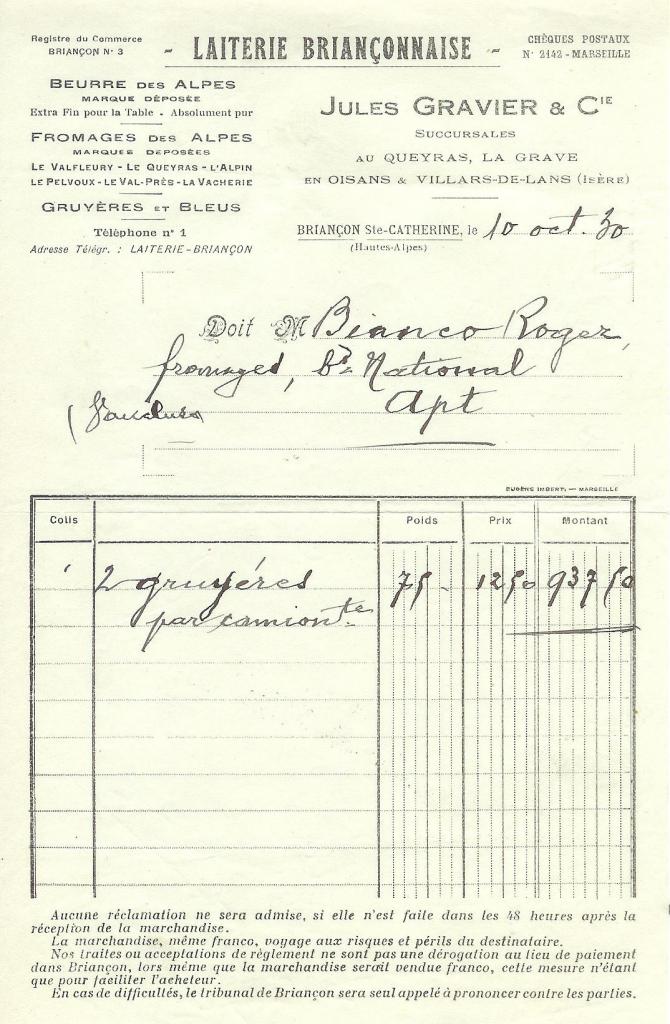 Registre du Commerce
BRIANÇON N° 3
- LAITERIE BRIANÇONNAISE -
CHÈQUES POSTAUX
N° 2142 - MARSEILLE
BEURRE DES ALPES
MARQUE DÉPOSÉE
Extra Fin pour la Table - Absolument pur
FROMAGES DES ALPES
MARQUES DÉPOSÉES
LE VALFLEURY - LE QUEYRAS - L'ALPIN
LE PELVOUX - LE VAL-PRÈS - LA VACHERIE
GRUYÈRES ET BLEUS
Téléphone n° 1
Adresse Télégr. : LAITERIE-BRIANÇON
JULES GRAVIER & CIE
SUCCURSALES
AU QUEYRAS, LA GRAVE
EN OISANS & VILLARS-DE-LANS (ISÈRE)
BRIANÇON Ste-CATHERINE, le 10 oct. 30
(Hautes-Alpes)
Doit M Bianco Roger,
fromages, bd National
Apt
(Vaucluse)
EUGÈNE IMBERT. — MARSEILLE
Colis Poids Prix Montant
1 2 gruyéres 75 - 12 50 937 50
par camionte
Aucune réclamation ne sera admise, si elle n'est faite dans les 48 heures après la
réception de la marchandise.
La marchandise, même franco, voyage aux risques et périls du destinataire.
Nos traites ou acceptations de règlement ne sont pas une dérogation au lieu de paiement
dans Briançon, lors même que la marchandise serait vendue franco, cette mesure n'étant
que pour faciliter l'acheteur.
En cas de difficultés, le tribunal de Briançon sera seul appelé à prononcer contre les parties.